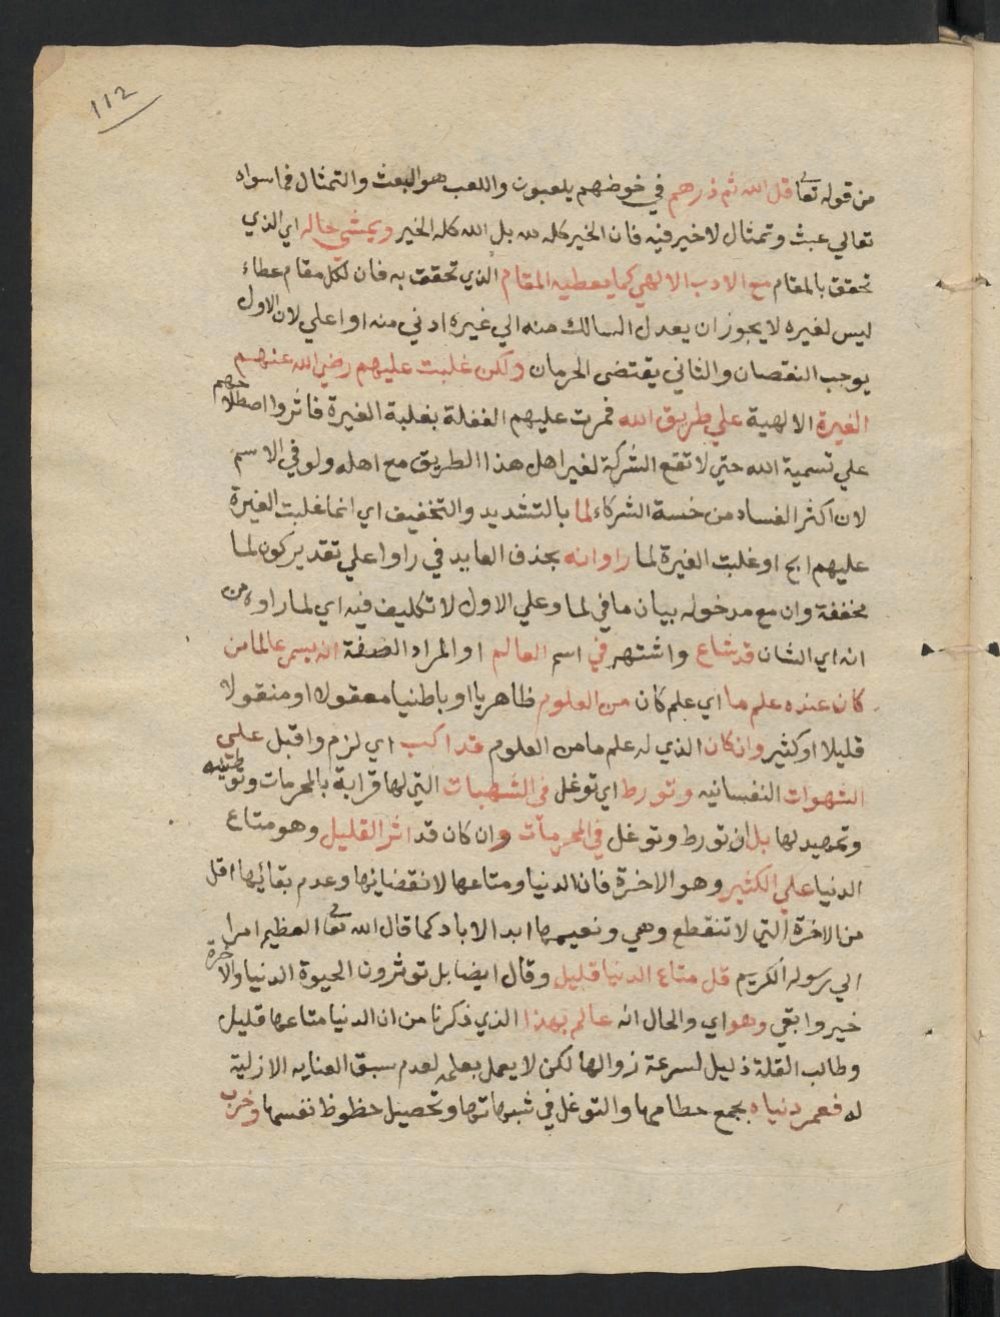 112
من قوله تعا قل الله ثم ذرهم في خوضهم يلعبون واللعب هو البعث والتمثال فماسواه
تعالي عبث وتمثال لاخير فيه فان الخير كله لله بل الله كله الخير ويمشي حاله اي الذي
تحقق بالمقام مع الادب الالهي كما يعطيه المقام الذي تحققت به فان لكل مقام عطاء
ليس لغيره لا يجوز ان يعدل السالك منه الي غيره ادني منه او اعلي لان الاول
يوجب النقصان والثاني يقتضي الحرمان ولكن غلبت عليهم رضي الله عنهم
الغيرة الالهية علي طريق الله فمرت عليهم الغفلة بغلبة الغيرة فاثروا اصطلاحهم
علي تسمية الله حتي لا تقع الشركة لغير اهل هذا الطريق مع اهله ولو في الاسم
لان اكثر الفساد من خسة الشركاء لما بالتشديد والتخفيف اي انما غلبت الغيرة
عليهم الخ او غلبت الغيرة لما راوا انه بحذف العايد في راوا علي تقدير كون لما
مخففة وان مع مدخوله بيان ما في لما وعلي الاول لا تكليف فيه اي لما راوه من
انه اي الشان قد شاع واشتهر في اسم العالم او المراد الصفة انه يسمي عالما من
كان عنده علم ما اي علم كان من العلوم ظاهريا او باطنيا معقولا او منقولا
قليلا او كثير وان كان الذي له علم ما من العلوم قد اكب اي لزم واقبل علي
الشهوات النفسانيه وتورط اي توغل في الشبهات التي لها قرابة بالمحرمات وتوطئة
وتمهيد لها بل ان تورط وتوغل في المحرمات وان كان قد اثر القليل وهو متاع
الدنيا علي الكثير وهو الاخرة فان الدنيا ومتاعها لانقضائها وعدم بقائها اقل
من الاخرة التي لا تنقطع وهي ونعيمها ابد الاباد كما قال الله تعا العظيم امرا
الي رسوله الكريم قل متاع الدنيا قليل وقال ايضا بل توثرون الحيوة الدنيا والاخرة
خير وابقي وهو اي والحال انه عالم بهذا الذي ذكرنا من ان الدنيا متاعها قليل
وطالب القلة ذليل لسرعة زوالها لكن لا يعمل بعلمه لعدم سبق العنايه الازلية
له فعمر دنياه بجمع حطامها والتوغل في شبهاتها وتحصيل حظوظ نفسها وخرب